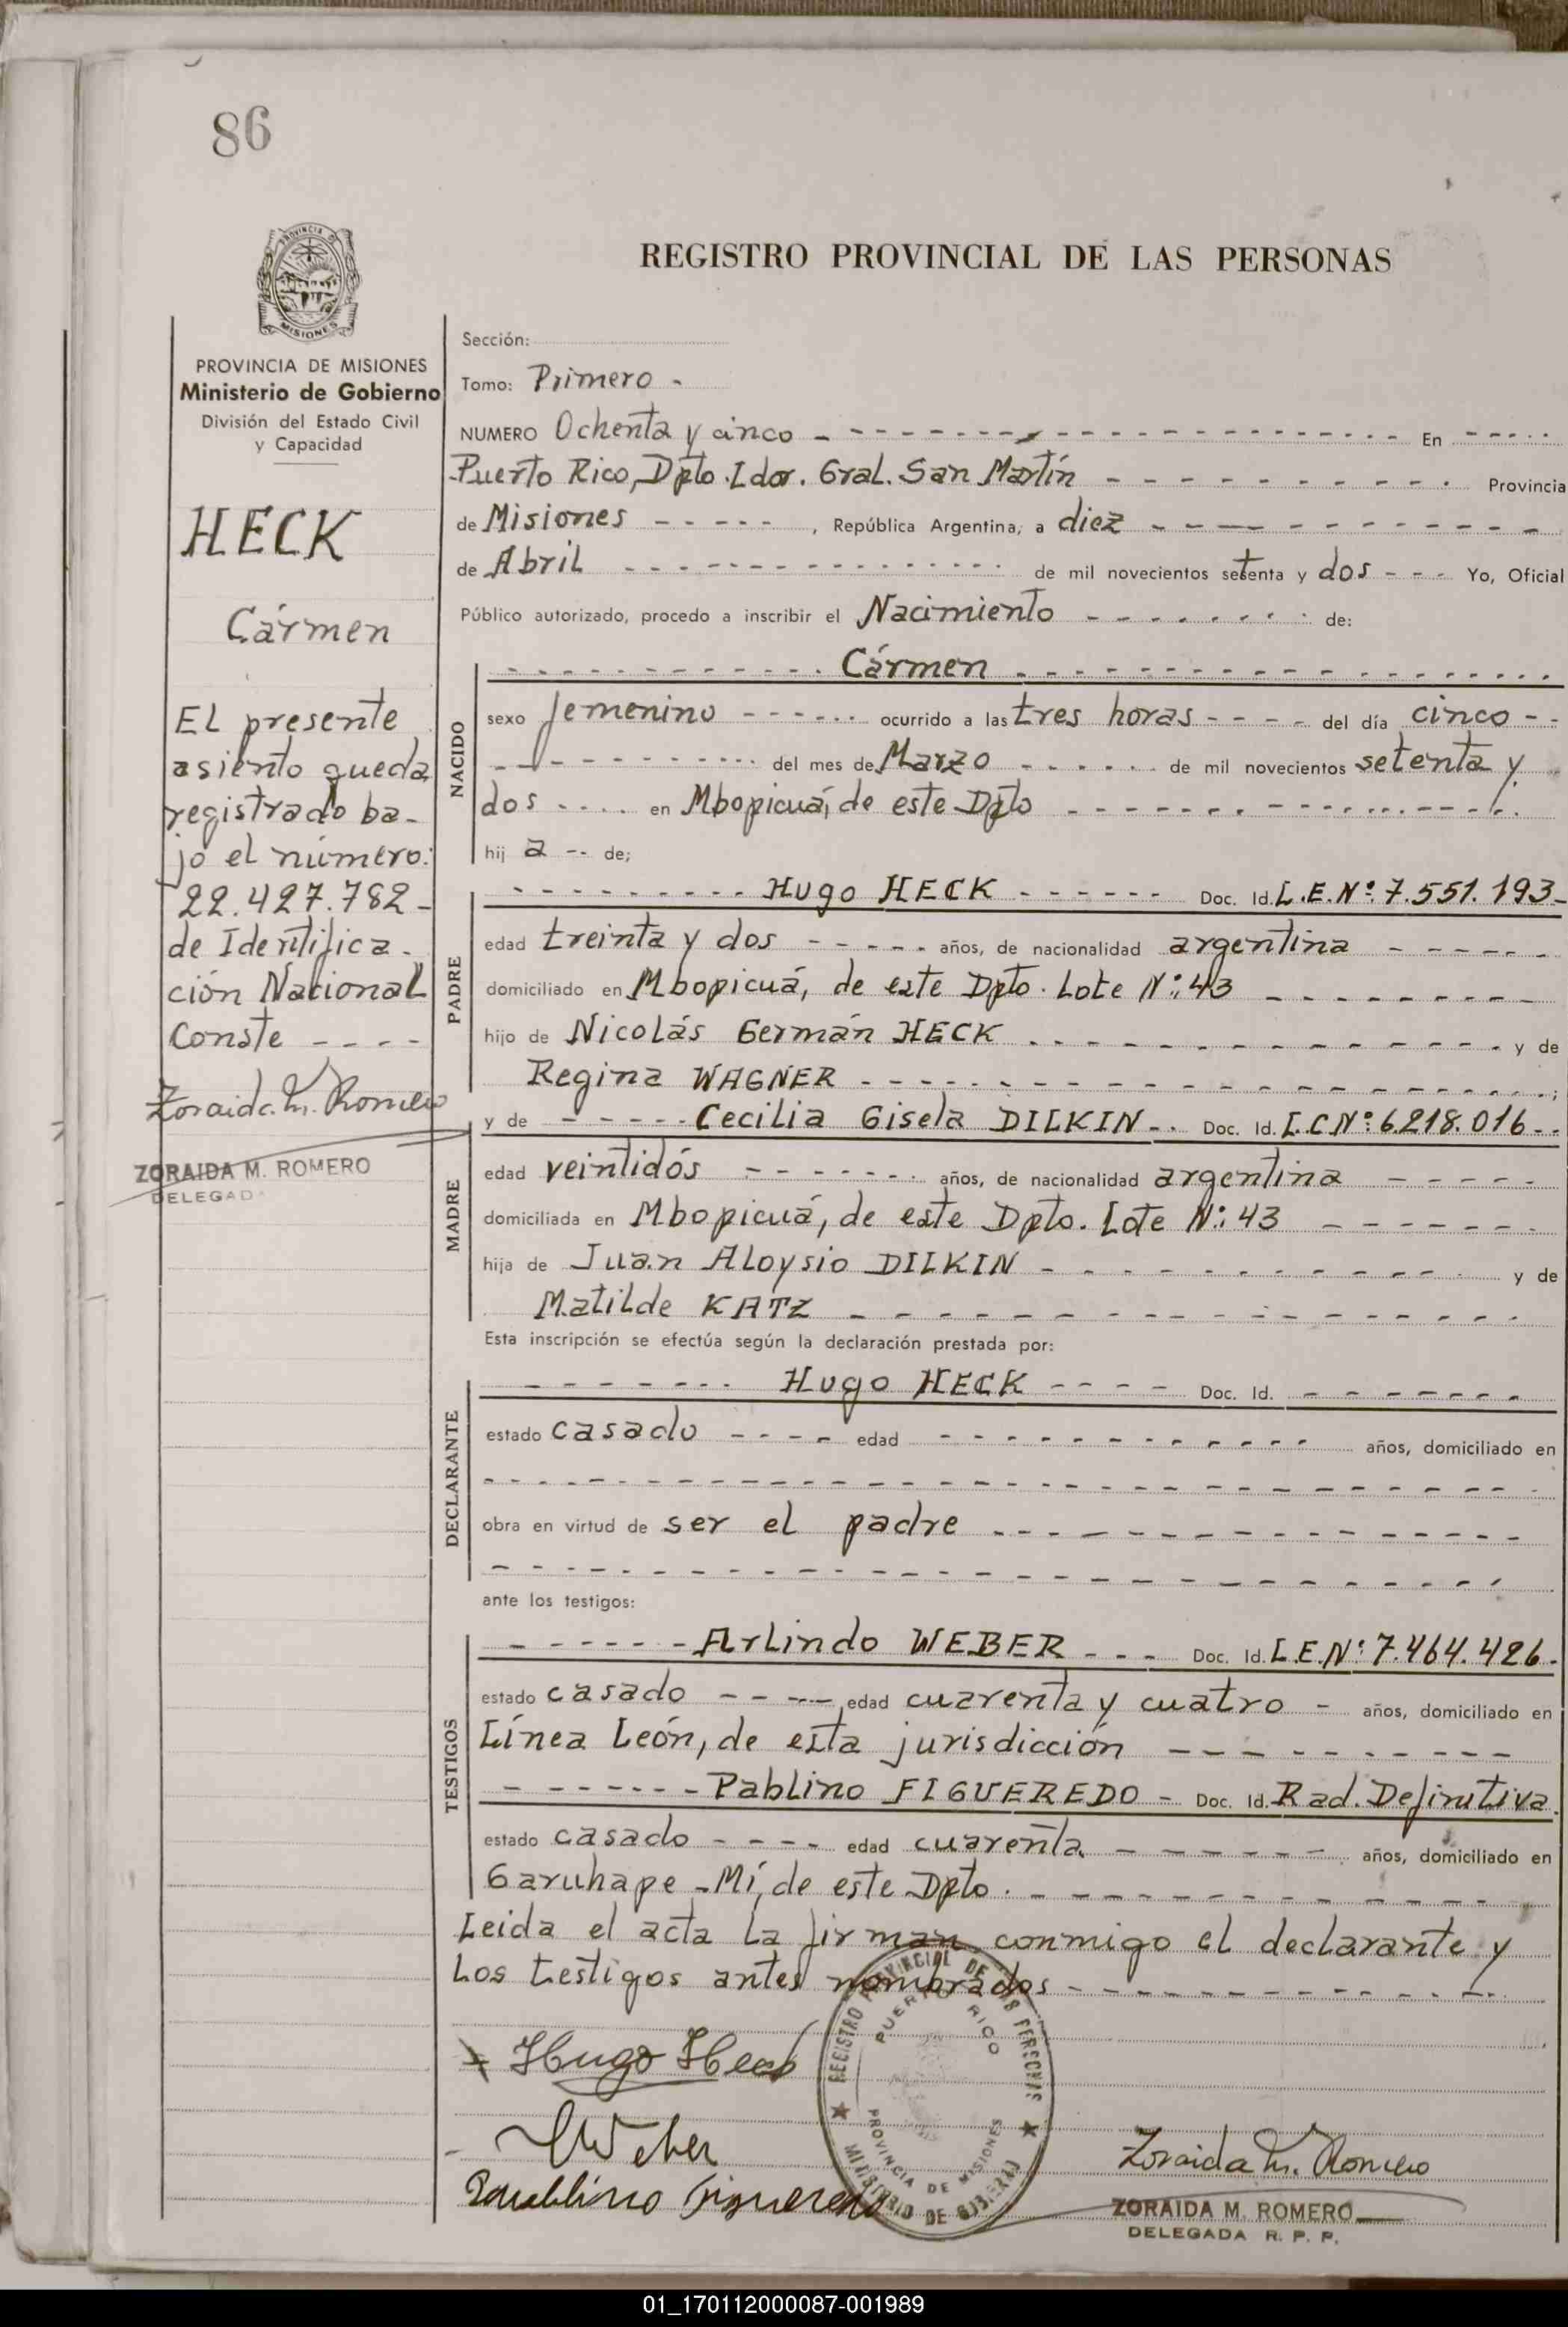 86
PROVINCIA DE
MISIONES
PROVINCIA DE MISIONES
Ministerio de Gobierno
División del Estado Civil
y Capacidad
HECK
Cármen
El presente
asiento queda
registrado ba-
jo el número:
22.427.782-
de Identifica-
ción Nacional
Conste ----
Zoraida M. Romero
ZORAIDA M. ROMERO
DELEGADA
REGISTRO PROVINCIAL DE LAS PERSONAS
Sección:
Tomo: Primero -
NUMERO Ochenta y cinco - En
Puerto Rico, Dpto. Ldor. Gral. San Martín - Provincia
de Misiones - , República Argentina, a diez -
de Abril - de mil novecientos setenta y dos - Yo, Oficial
Público autorizado, procedo a inscribir el Nacimiento - de:
Cármen
NACIDO
sexo femenino - ocurrido a las tres horas - del día cinco -
- del mes de Marzo - de mil novecientos setenta y
dos - en Mbopicuá, de este Dpto -
hij a -- de;
PADRE
Hugo HECK - Doc. Id. L.E.Nº: 7.551.193-
edad treinta y dos - años, de nacionalidad argentina -
domiciliado en Mbopicuá, de este Dpto. Lote Nº: 43 -
hijo de Nicolás Germán HECK - y de
Regina WAGNER - ;
MADRE
y de - Cecilia Gisela DILKIN - Doc. Id. L.C.Nº: 6.218.016 -
edad veintidós - años, de nacionalidad argentina -
domiciliada en Mbopicuá, de este Dpto. Lote Nº: 43 -
hija de Juan Aloysio DILKIN - y de
Matilde KATZ -
Esta inscripción se efectúa según la declaración prestada por:
DECLARANTE
Hugo HECK - Doc. Id. -
estado casado - edad - años, domiciliado en
obra en virtud de ser el padre -
ante los testigos:
TESTIGOS
Arlindo WEBER - Doc. Id. L.E.Nº: 7.464.426-
estado casado - edad cuarenta y cuatro - años, domiciliado en
Línea León, de esta jurisdicción -
Pablino FIGUEREDO - Doc. Id. Rad. Definitiva
estado casado - edad cuarenta - años, domiciliado en
Garuhape-Mí, de este Dpto. -
Leida el acta la firman conmigo el declarante y
los testigos antes nombrados -
Hugo Heck
Weber
Paublino Figueredo
REGISTRO PROVINCIAL DE LAS PERSONAS
PUERTO RICO
PROVINCIA DE MISIONES
MINISTERIO DE GOBIERNO
Zoraida M. Romero
ZORAIDA M. ROMERO
DELEGADA R. P. P.
01_170112000087-001989